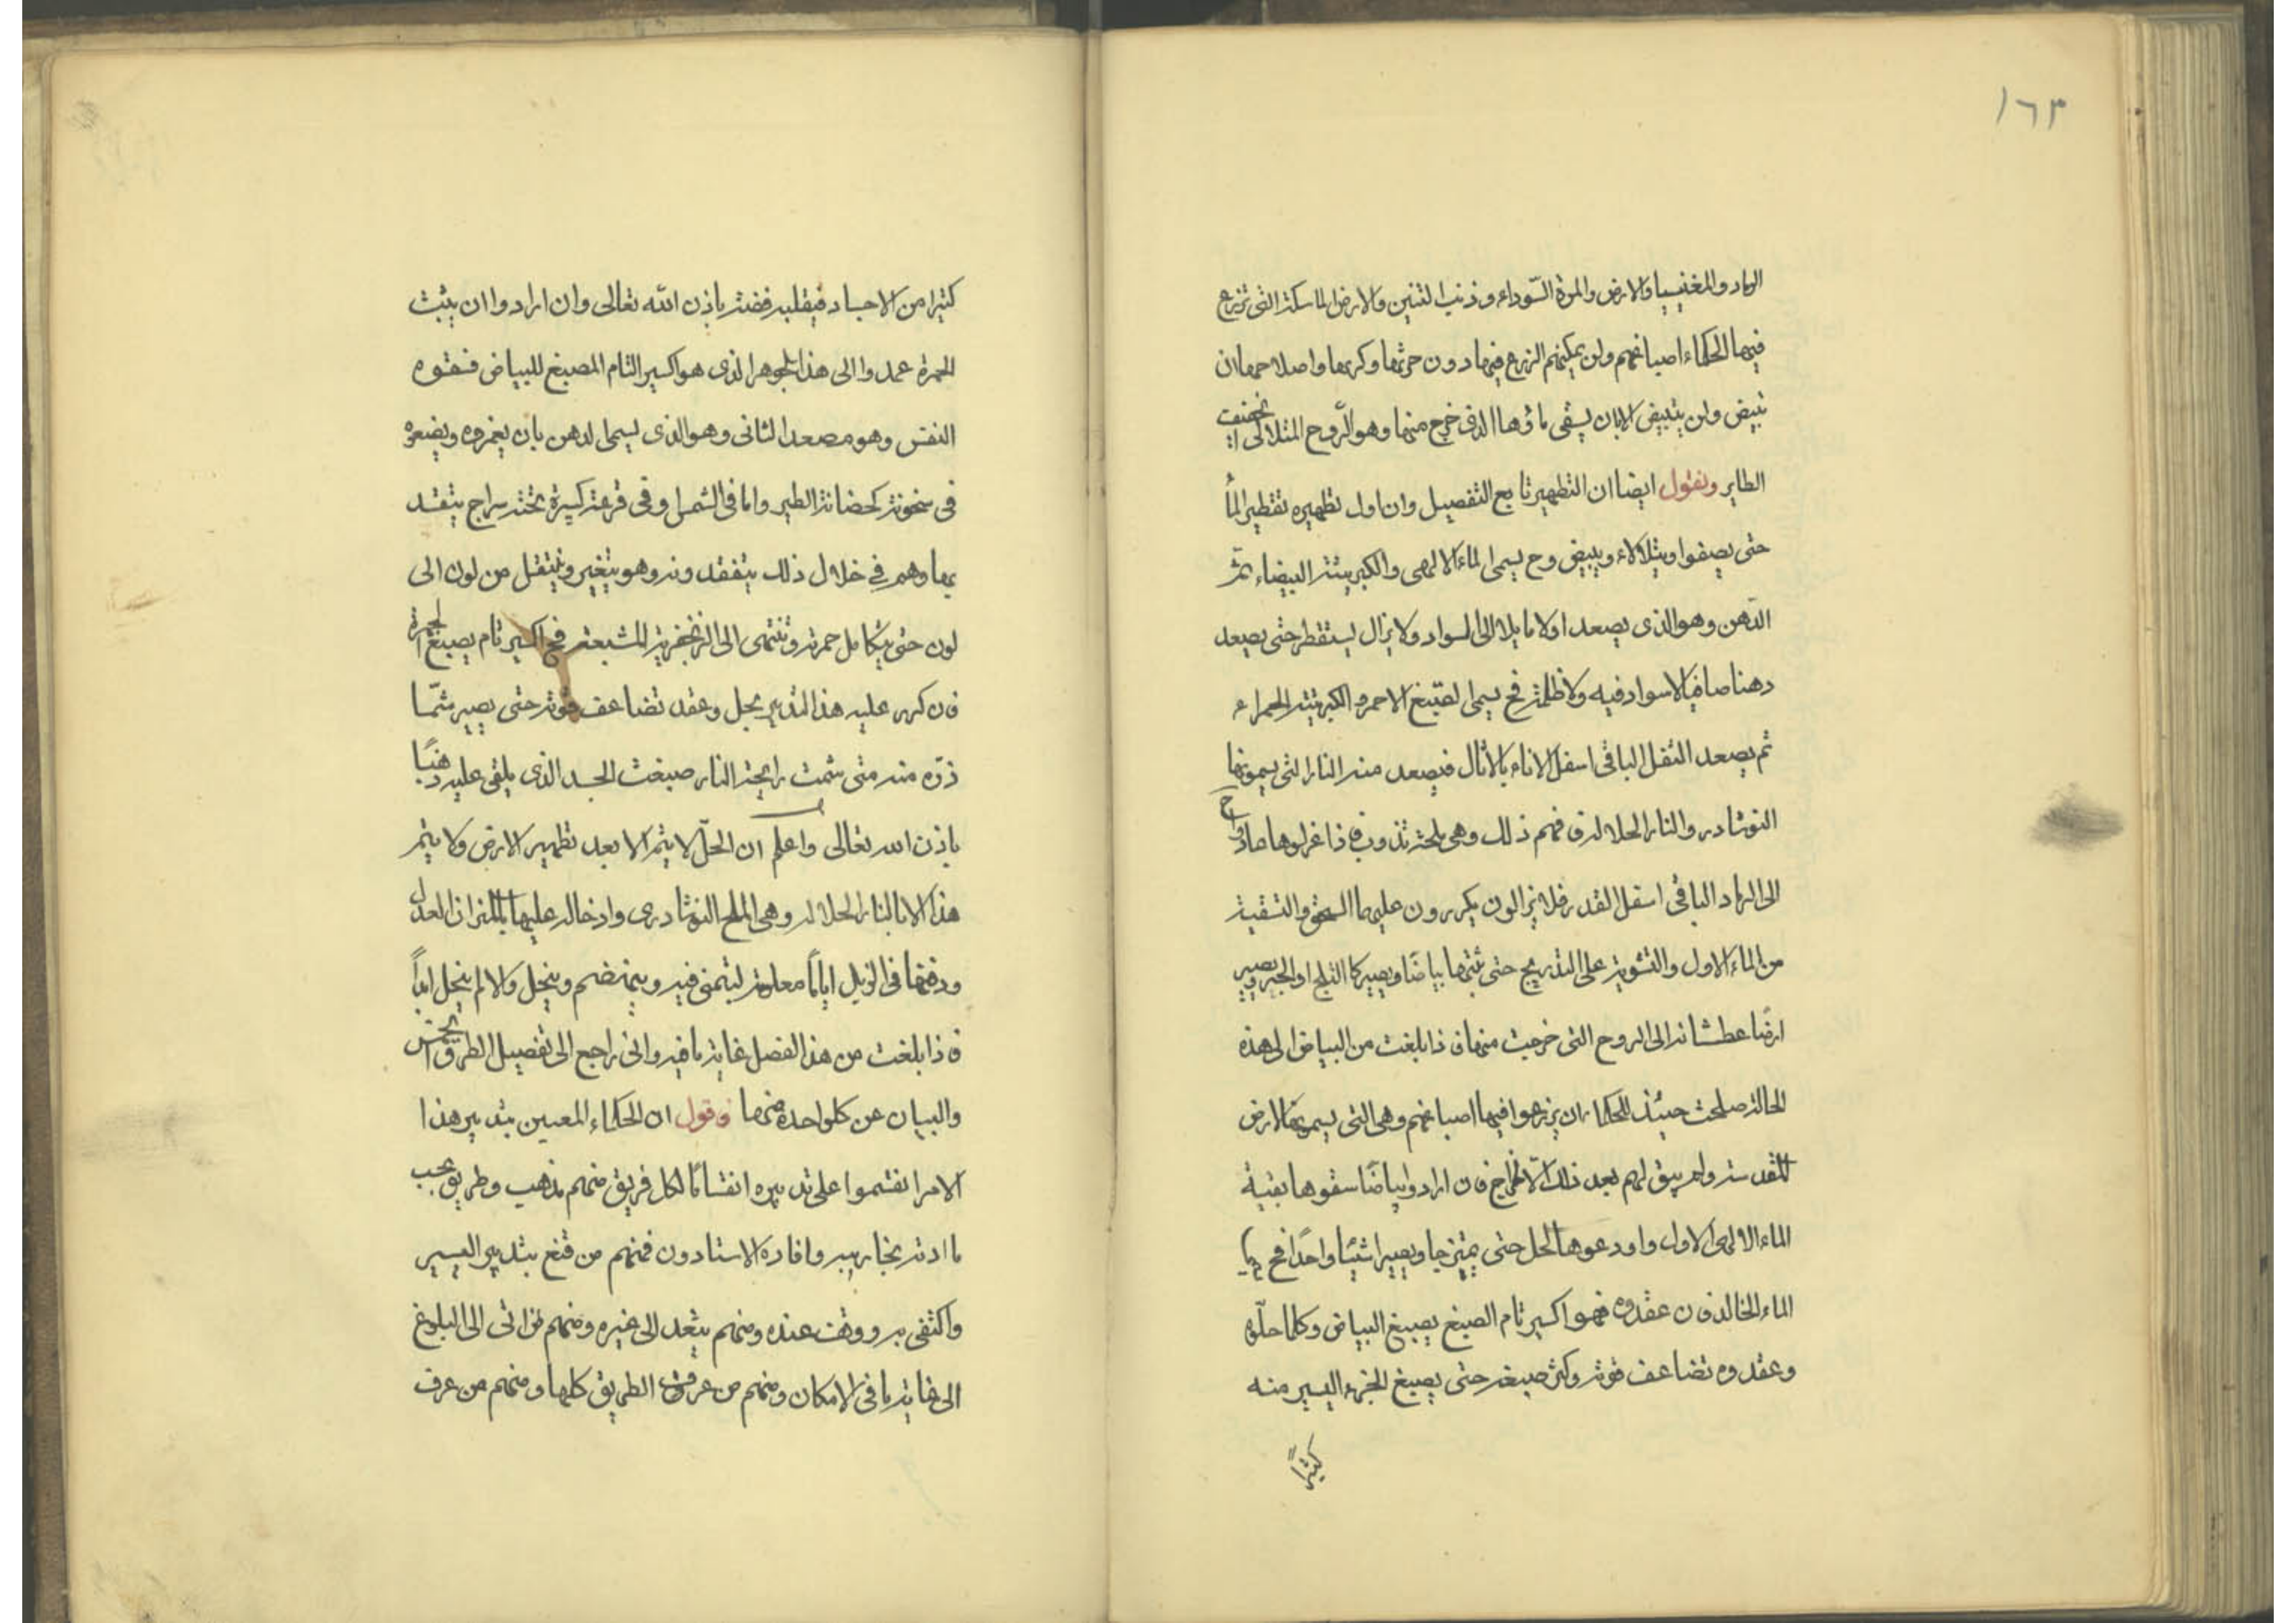 ١٦٣
الرماد والمغنيسيا والارض والمرة السوداء وذنب التنين والارض الماسكة التى تزرع
فيها الحكماء اصباغهم ولن يمكنهم الزرع فيها دون حرثها وكربها واصلاحها ان
تبيض ولن يتبيض الا بان يسقى ماؤها الذى خرج منها وهو الروح المتلالى الخفيف
الطاير ونقول ايضا ان التطهير تابع التفصيل وان اول تطهيره تقطير الماء
حتى يصفوا ويتلالاء ويبيض وح يسمى الماء الالهى والكبريتة البيضاء ثم
الدهن وهو الذى يصعد اولا مايلا الى السواد ولا يزال يستقطر حتى يصعد
دهنا صافيا لا سواد فيه ولا ظلمة فح يسمى الصبغ الاحمر والكبريتة الحمراء
ثم يصعد الثفل الباقى اسفل الاناء بالاثال فيصعد منه النار التى يسمونها
النوشادر والنار الحلالة فافهم ذلك وهى ملحة تذوب فاذا عزلوها عادوا ح
الى الرماد الباقى اسفل القدر فلا يزالون يكررون عليها السحق والتسقية
من الماء الاول والتشوية على التدريج حتى يتم بياضا ويصير كالثلج او الجير ويصير
ارضا عطشانة الى الروح التى خرجت منها فاذا بلغت من البياض الى هذه
الحالة صلحت حينئذ للحكما ان يزرعوا فيها اصباغهم وهى التى يسمونها الارض
المقدسة ولم يبق لهم بعد ذلك الا المزاج فان ارادوا بياضا سقوها بقية
الماء الالهى الاول واودعوها الحل حتى يمتزجا ويصيرا شيئا واحدا فح
الماء الخالد فان عقدوه فهو اكسير تام الصبغ يصبغ البياض وكلما حلوه
وعقدوه تضاعف قوته وكثر صبغه حتى يصبغ الجزء اليسير منه
كثيرا
كثيرا من الاجساد فيقلبه فضة باذن الله تعالى وان ارادوا ان يثبت
الحمرة عمدوا الى هذا الجوهر الذى هو اكسير التام المصبغ للبياض فسقوه
النفس وهو مصعد الثانى وهو الذى يسمى الدهن بان يغمروه ويضعوه
فى سخونة كحضانة الطير واما فى الشمس او فى قرعة كبيرة تحته سراج يتقد
بها وهم فى خلال ذلك يتفقدونه وهو يتغير وينتقل من لون الى
لون حتى يتكامل حمرته وتنتهى الى الزنجفرية المشبعة فح اكسير تام يصبغ الحمرة
فان كرر عليه هذا التدبير بحل وعقد تضاعف قوته حتى يصير سما
ذره منه متى شمت رايحة النار صبغت الجسد الذى يلقى عليه ذهبا
باذن الله تعالى واعلم ان الحل لا يتم الا بعد تطهير الارض ولا يتم
هذا الا بالنار الحلالة وهى الملح النوشادرى وادخاله عليها بالميزان العدل
ودفنها فى الزبل اياما معلومة ليتمنى فيه وينهضم وينحل والا لم ينحل ابدا
فاذا بلغت من هذا الفصل غاية ما فيه وانى راجع الى تفصيل الطرق الخمس
والبيان عن كل واحدة منها فاقول ان الحكماء المعنيين بتدبير هذا
الامر انقسموا على تدبيره انقساما لكل فريق منهم مذهب وطريق بحسب
ما ادته تجاريبه وافاده الاستادون فمنهم من قنع بتدبير اليسير
واكتفى به ووقف عنده ومنهم يتعد الى غيره ومنهم من اتى الى البلوغ
الى غاية ما فى الامكان ومنهم من عرف الطريق كلها ومنهم من عرف